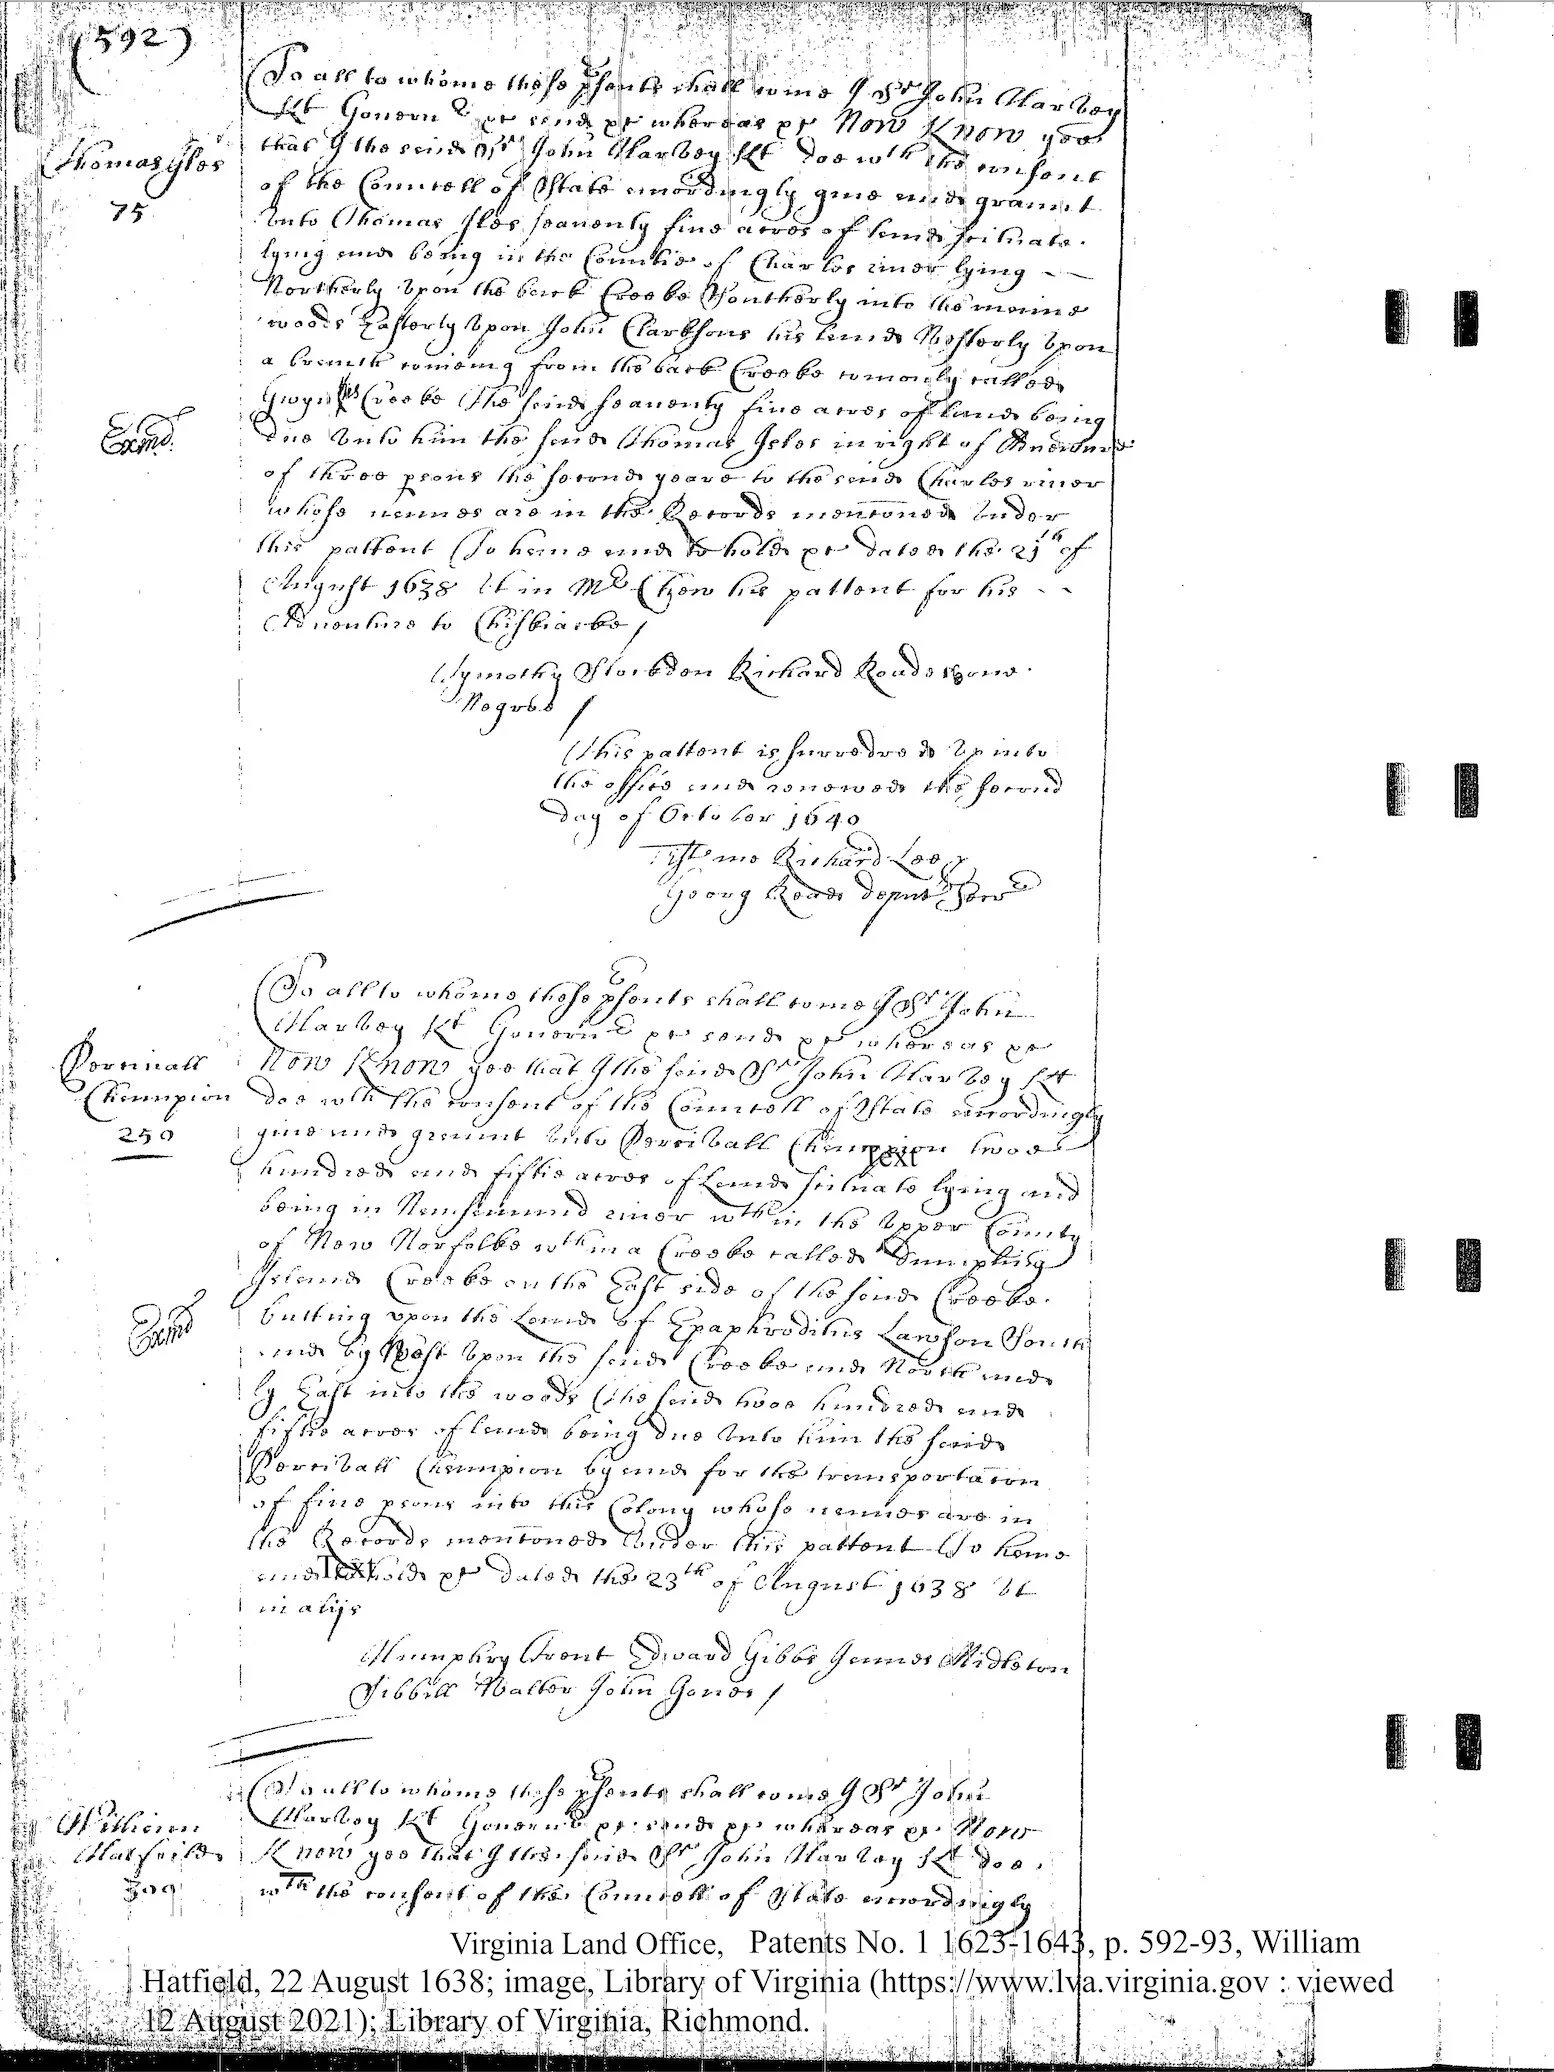 (592)
To all to whome these psents shall come I Sr John Harvey
Kt Governr &c send &c whereas &c Now Know yee
that I the said Sr John Harvey Kt doe wth the consent
Thomas Iles
75
of the Councell of State accordingly give and graunt
unto Thomas Iles seaventy five acres of land scituate
lying and being in the Countie of Charles river lying
Northerly upon the back Creeke Southerly into the maine
woods Easterly upon John Clarksons his land Westerly upon
a branch comeing from the back Creeke comonly called
Gwyns Creeke The said seaventy five acres of land being
Exmd.
due unto him the said Thomas Iles in right of
of three psons the second yeare to the said Charles river
whose names are in the Records mentoned under
this pattent To have and to hold &c dated the 21th of
August 1638 Ut in Mr Chew his pattent for his
Adventure to Chiskiacke /
Tymothy Stockden Richard Roades one
Negroe /
This pattent is surredred up into
the office and renewed the second
day of October 1640
Teste me Richard Lee
Georg Reade deput Secr
To all to whome these psents shall come I Sr John
Harvey Kt Governr &c send &c whereas &c
Percivall
Champion
250
Now Know yee that I the said Sr John Harvey Kt
doe wth the consent of the Councell of State accordingly
give and graunt unto Percivall Champion twoe
Text
hundred and fiftie acres of Land scituate lying and
being in Nansamund river wthin the Upper County
of New Norfolke wthin a Creeke called Dumpling
Island Creeke on the East side of the said Creeke
butting upon the Land of Epaphroditus Lawson South
Exmd
and by West upon the said Creeke and North and
by East into the woods The said twoe hundred and
fiftie acres of land being due unto him the said
Percivall Champion by and for the transportacon
of five psons into this Colony whose names are in
the Records mentoned under this pattent To have
and to hold &c dated the 23th of August 1638 Ut
Text
in aliis
Humphry Trent Edward Gibbs James Midleton
Sibbill Walter John Gones /
To all to whome these psents shall come I Sr John
Harvey Kt Governr &c send &c whereas &c Now
William
Hatfeild
300
Know yee that I the said Sr John Harvey Kt doe
wth the consent of the Councell of State accordingly
Virginia Land Office, Patents No. 1 1623-1643, p. 592-93, William
Hatfield, 22 August 1638; image, Library of Virginia (https://www.lva.virginia.gov : viewed
12 August 2021); Library of Virginia, Richmond.